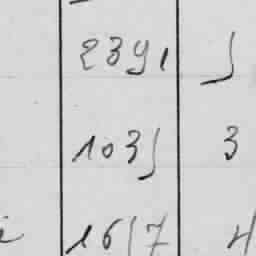 2391 5
1035 3
1657 4